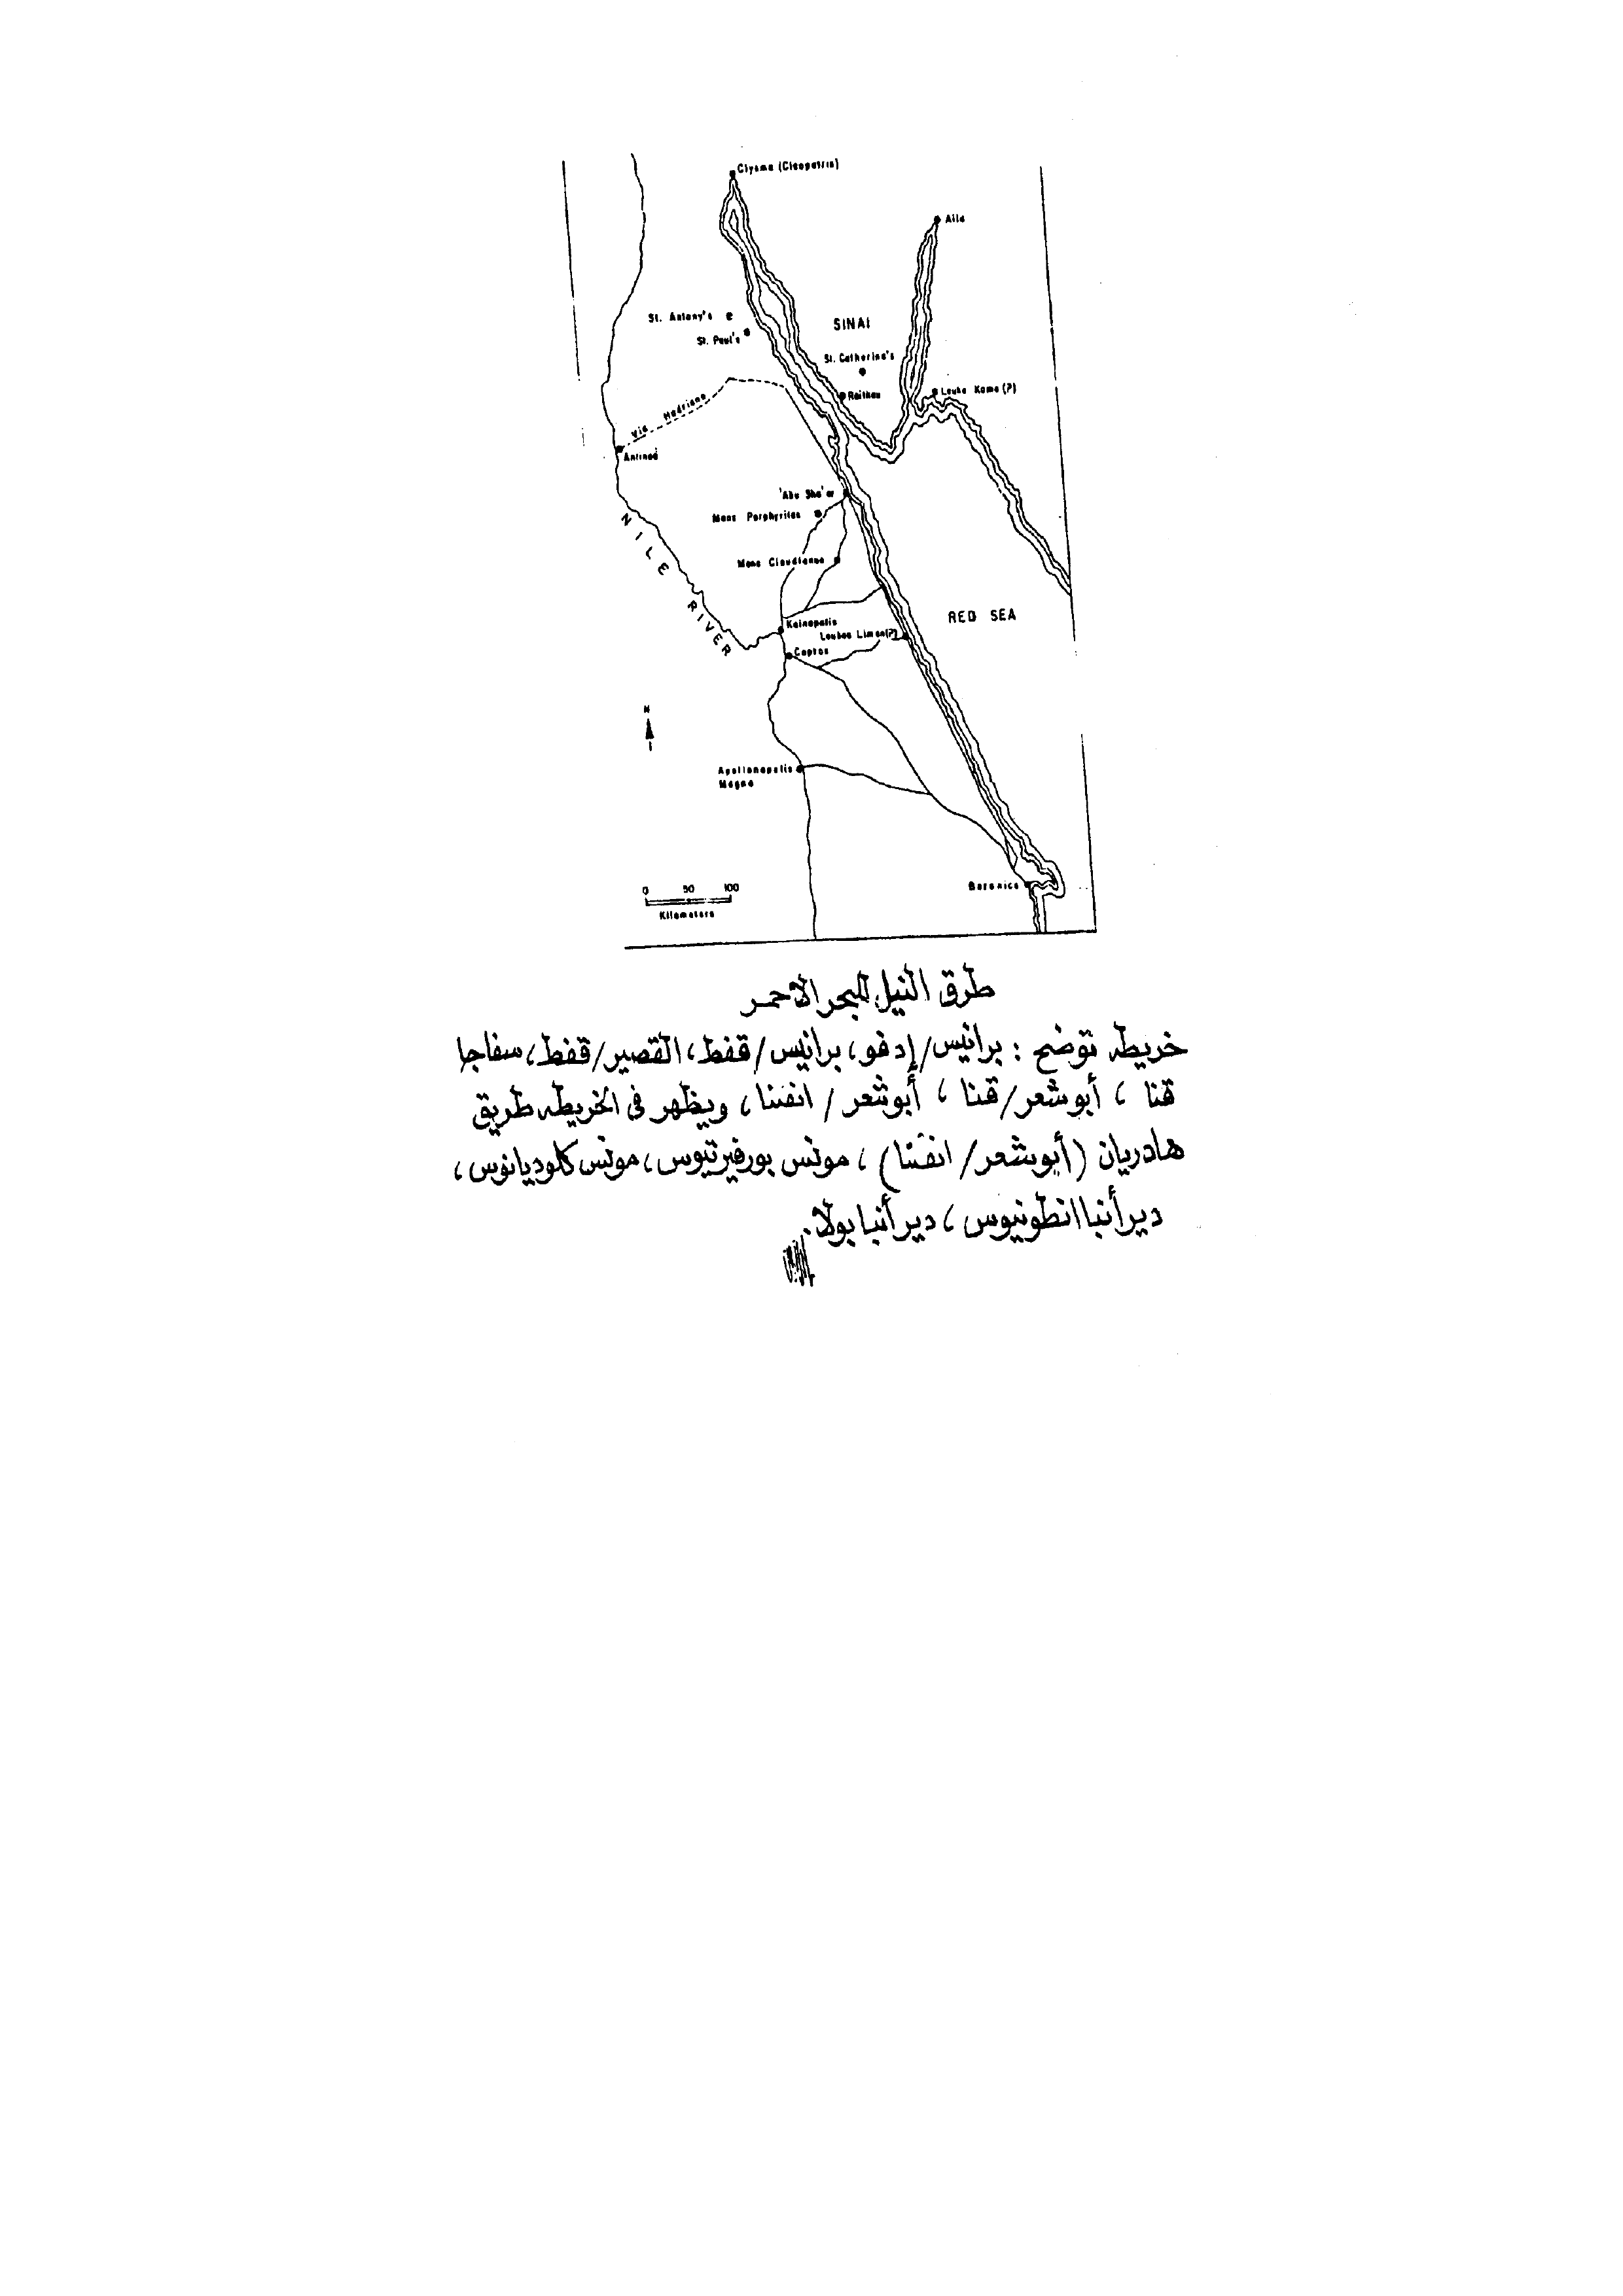 Clysma (Cleopatris)
Aila
St. Antony's
SINAI
St. Paul's
St. Catherine's
Raithou
Leuke Kome (?)
Via Hadriana
Antinoé
'Abu Sha'ar
Mons Porphyrites
NILE RIVER
Mons Claudianus
RED SEA
Kainopolis
Leukos Limen(?)
Coptos
N
Apollonopolis
Magna
Berenice
0 50 100
Kilometers
طرق النيل للبحر الاحمر
خريطه توضح : برانيس/إدفو، برانيس/قفط، القصير/قفط، سفاجا
قنا ، أبوشعر/قنا ، أبوشعر/ انفننا، ويظهر فى الخريطه طريق
هادريان (أبوشعر/ انفننا) ، مونس بورفيرتيوس، مونس كلوديانوس،
دير أنبا انطونيوس ، دير أنبا بولا.